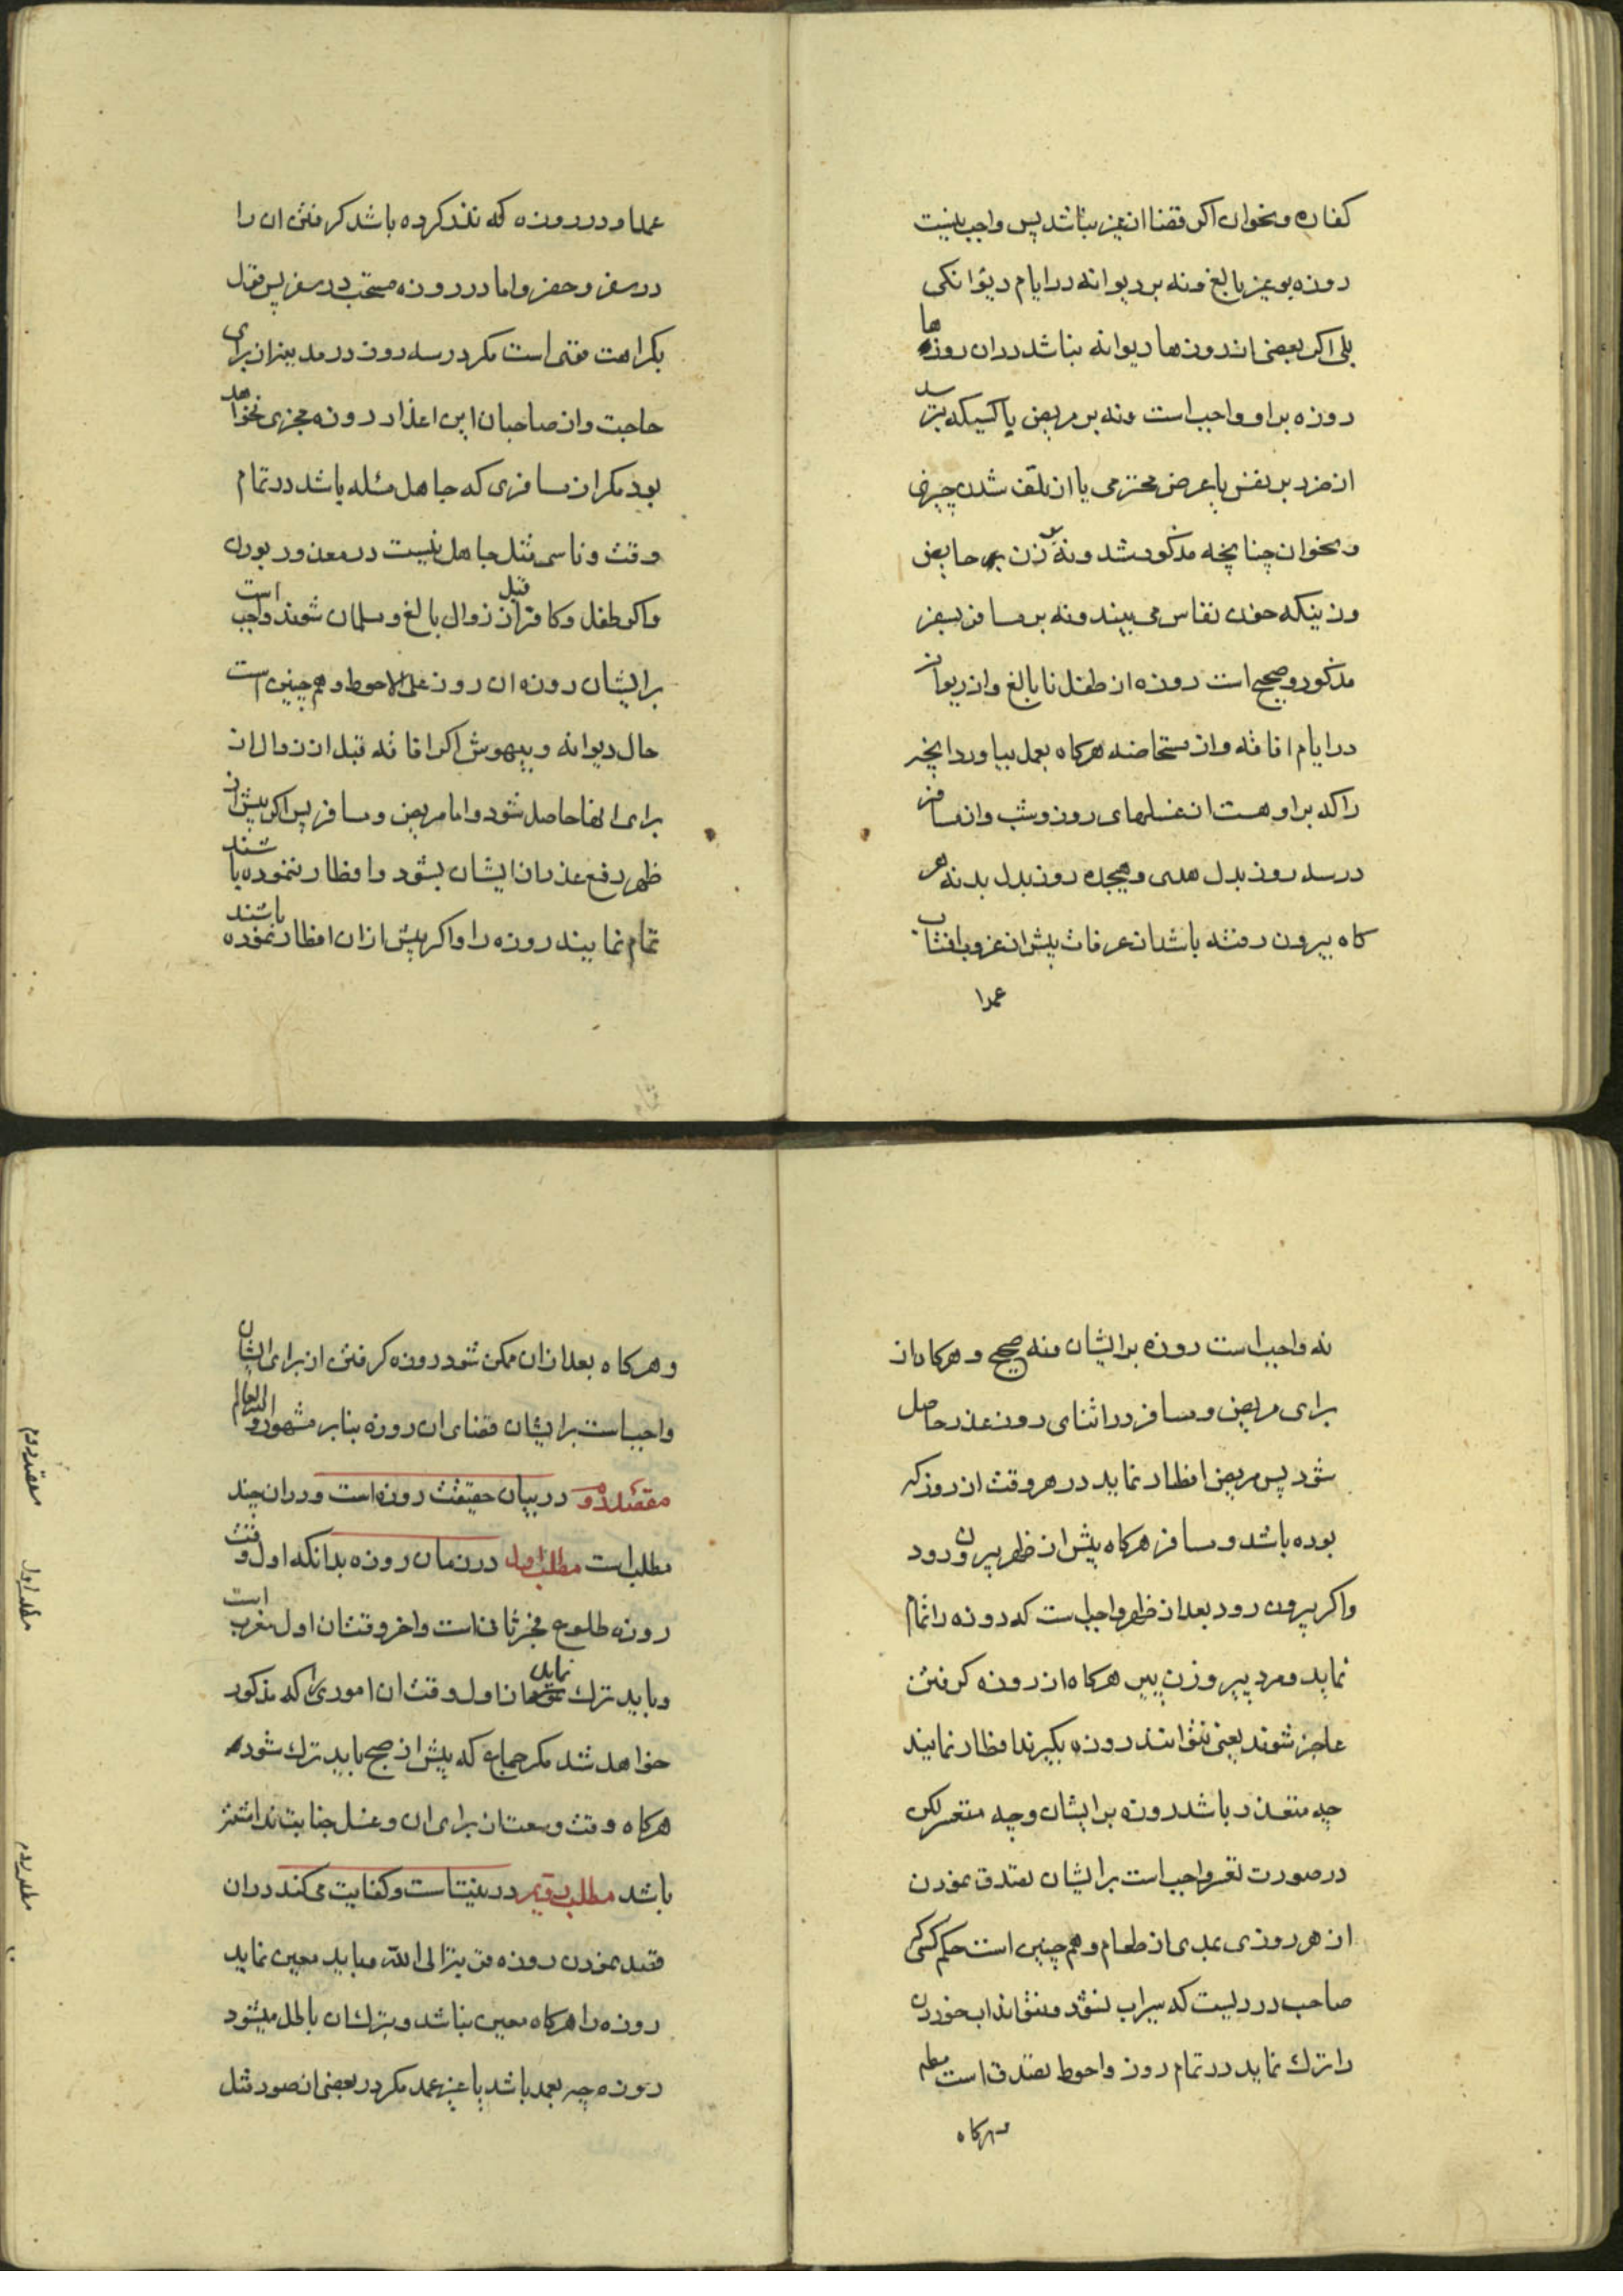 کفاره و نحو ان اگر قضا از غیر نباشد پس واجب نیست
روزه بر غیر بالغ و نه بر دیوانه در ایام دیوانکی
بلی اکر بعضی از روزها دیوانه نباشد در ان روزها
روزه بر او واجب است و نه بر مریض یا کسیکه بترسد
از ضرر بر نفس یا عرض محترمی یا از تلف شدن چیزی
و نحو ان چنانچه مذکور شد و نه بر زن حایض
و زنیکه خون نفاس می بیند و نه بر مسافر بسفر
مذکور و صحیح است روزه از طفل نابالغ و از دیوانه
در ایام افاقه و از مستحاضه هرکاه بعمل بیاورد انچه
را که بر او هست از غسلهای روز و شب و از مسافر
در سه روز بدل هدی و هیجده روز بدل بدنه هر
کاه بیرون رفته باشد از عرفات پیش از غروب افتاب
عمدا
عمدا و در روزه که نذر کرده باشد کرفتن ان را
در سفر و حضر و اما در روزه مستحب در سفر پس قول
بکراهت قوی است مکر در سه روز در مدینه از برای
حاجت و از صاحبان این اعذار روزه مجزی نخواهد
بود مکر از مسافری که جاهل مسئله باشد در تمام
وقت و ناسی مثل جاهل نیست در معذور بودن
و اکر طفل و کافر قبل از زوال بالغ و مسلمان شوند واجب است
بر ایشان روزه ان روز علی الاحوط و هم چنین است
حال دیوانه و بیهوش اکر افاقه قبل از زوال از
برای انها حاصل شود و اما مریض و مسافر پس اکر پیش از
ظهر رفع عذر از ایشان بشود و افطار ننموده باشند
تمام نمایند روزه را و اکر پیش از ان افطار نموده باشند
نه واجب است روزه بر ایشان و نه صحیح و هرکاه از
برای مریض و مسافر در اثنای روز عذر حاصل
شود پس مریض افطار نماید در هر وقت از روز که
بوده باشد و مسافر هرکاه پیش از ظهر بیرون رود
و اکر بیرون رود بعد از ظهر واجب است که روزه را تمام
نماید و مرد پیر و زن پیر هرکاه از روزه کرفتن
عاجز شوند یعنی نتوانند روزه بکیرند افطار نمایند
چه متعذر باشد روزه بر ایشان و چه متعسر لکن
در صورت تعسر واجب است بر ایشان تصدق نمودن
از هر روزی بمدی از طعام و هم چنین است حکم کسی که
صاحب دردیست که سیراب نشود و نتواند اب خوردن
را ترک نماید در تمام روز و احوط تصدق است مطم
و هرکاه
و هرکاه بعد از ان ممکن شود روزه کرفتن از برای ایشان
واجب است بر ایشان قضای ان روزه بنابر مشهور و الله العالم
مقصد دوم در بیان حقیقت روزه است و در ان چند
مطلب است مطلب اول در زمان روزه بدانکه اول وقت
روزه طلوع فجر ثانی است و اخر وقت ان اول مغرب است
و باید ترک نماید از اول وقت ان اموری را که مذکور
خواهد شد مکر جماع که پیش از صبح باید ترک شود
هرکاه وقت وسعت از برای ان و غسل جنابت نداشته
باشد مطلب دویم در نیت است و کفایت می کند در ان
قصد نمودن روزه قربة الی الله و باید معین نماید
روزه را هرکاه معین نباشد و بترک ان باطل میشود
روزه چه بعمد باشد یا غیر عمد مکر در بعضی از صور مثل
مقصد دوم
مطلب اول
مطلب دوم